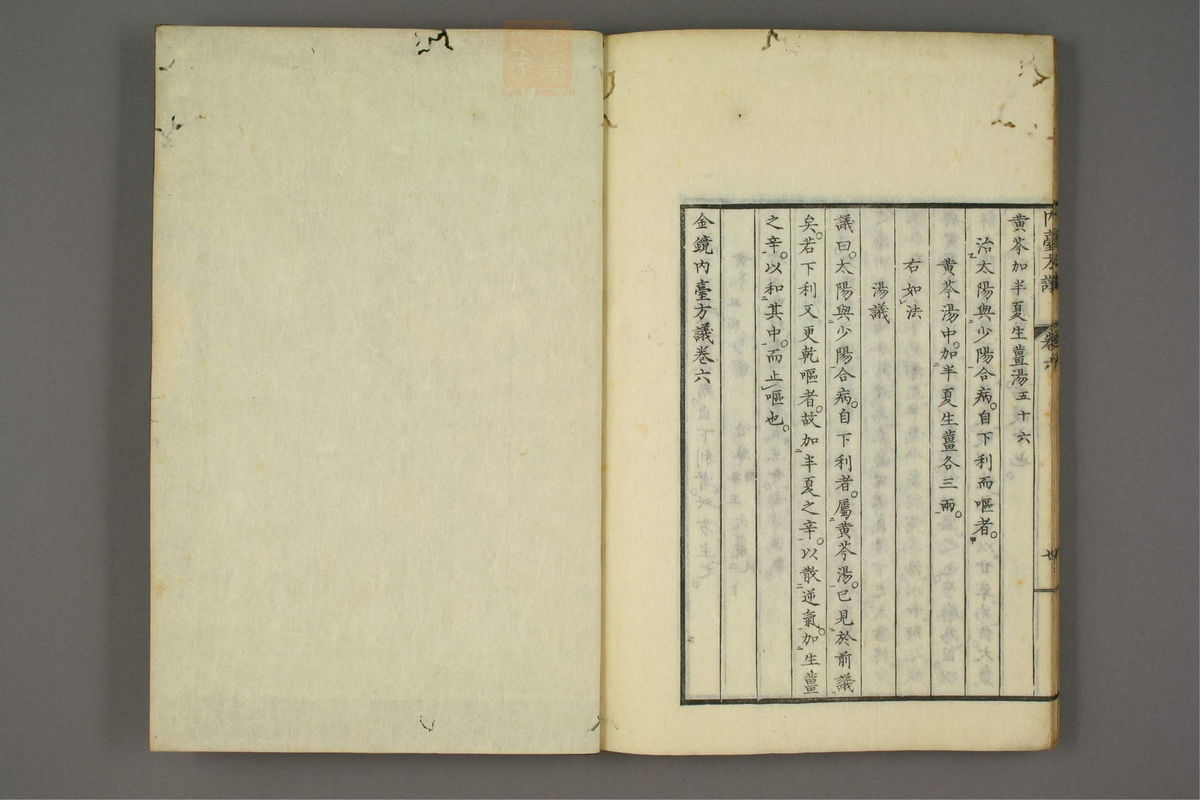 內臺方議 卷六
黃芩加半夏生薑湯五十六
治太陽與少陽合病。自下利而嘔者。
黃芩湯中。加半夏生薑各三兩。
右如法
湯議
議曰。太陽與少陽合病。自下利者。屬黃芩湯。已見於前議
矣。若下利又更乾嘔者。故加半夏之辛。以散逆氣。加生薑
之辛。以和其中。而止嘔也。
金鏡內臺方議卷六